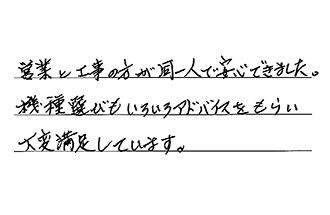 営業と工事の方が同一人で安心できました。
機種選びもいろいろアドバイスをもらい
大変満足しています。